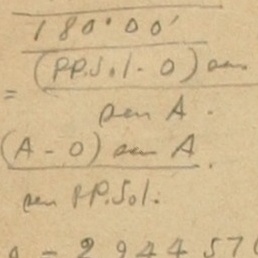 180°00'
(PP.Sol. - O) sen
=
sen A.
(A - O) sen A.
sen PP.Sol.
- 2 9 4 4 5 7